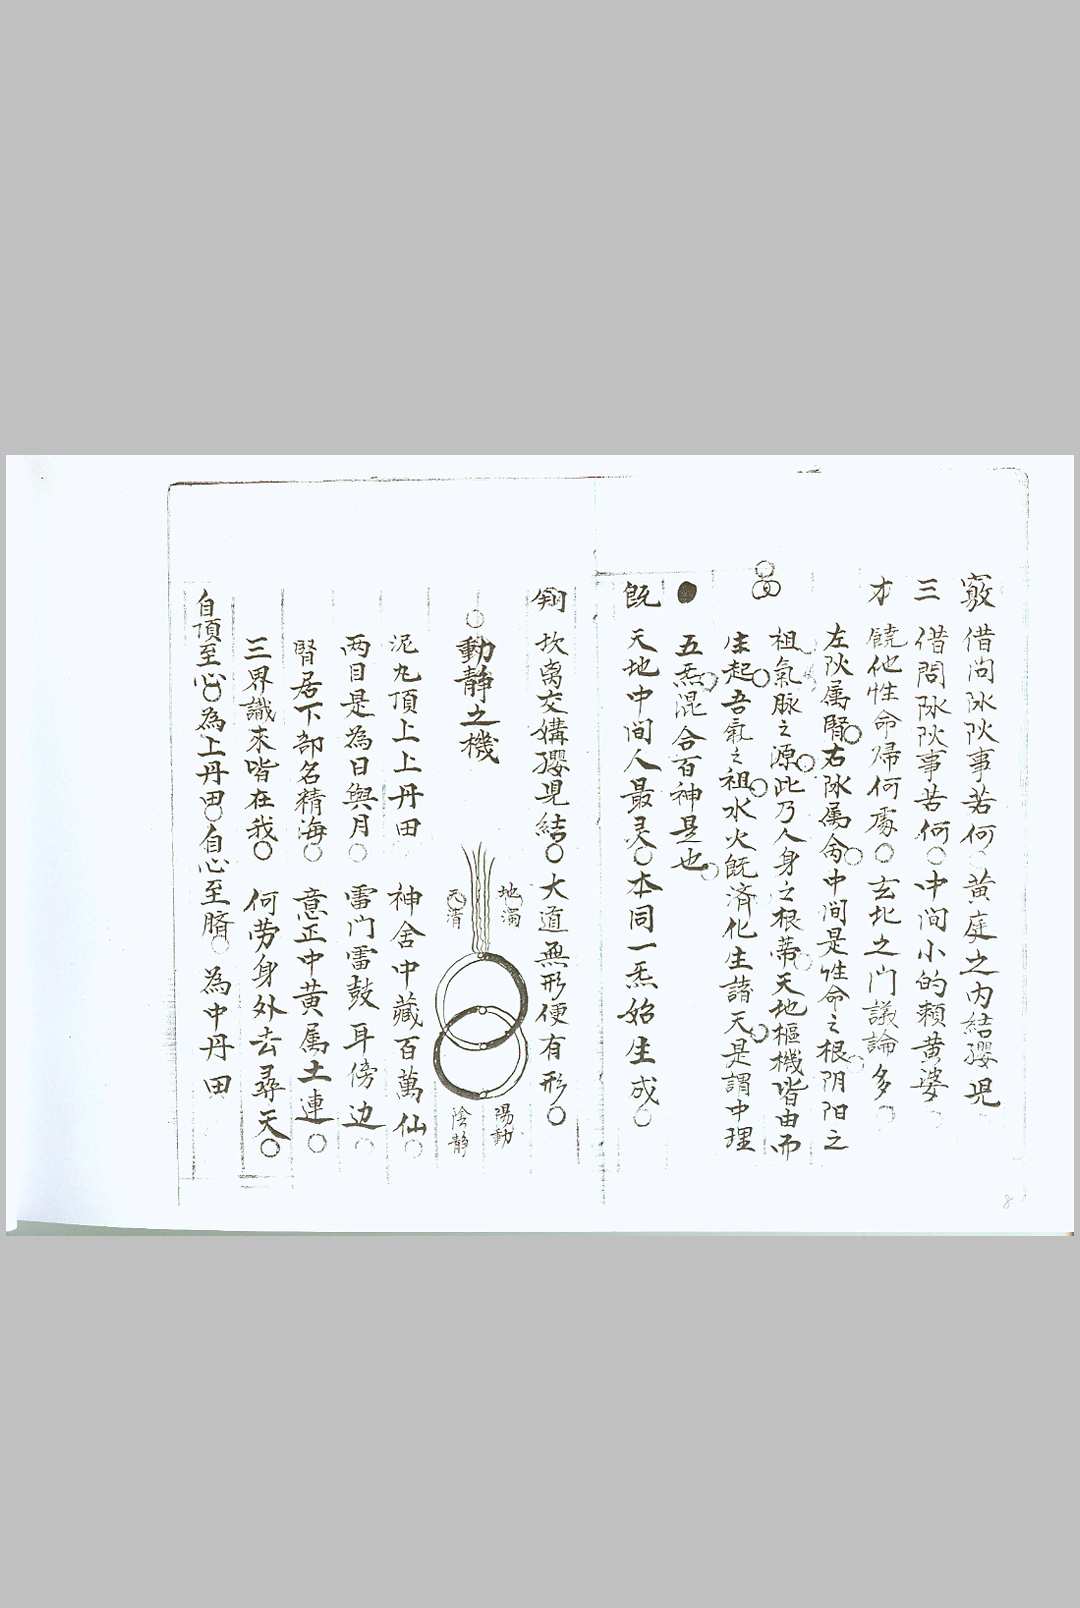 竅 借问阥阦事若何 黄庭之内結㜲児
三 借問阥阦事若何○中间小的頼黄婆
才 饒他性命帰何處○玄牝之门議論多○
左阦属腎○右阥属命○中间是性命之根○阴阳之
祖氣脉之源○此乃人身之根蒂○天地樞機皆由而
生起○吾氣之祖○水火既済化生諸天○是謂中理
五炁○混合百神是也○
既 天地中间人最灵○本同一炁始生成○
坎离交媾㜲児結○大道無形便有形○
○動静之機
地濁
天清
陽動
陰静
泥丸頂上上丹田 神舍中藏百萬仙○
两目是為日與月○雷门雷鼓耳傍边○
腎居下部名精海○意正中黄属土連○
三界識来皆在我○何劳身外去尋天○
自頂至心○為上丹田○自心至臍○為中丹田
8